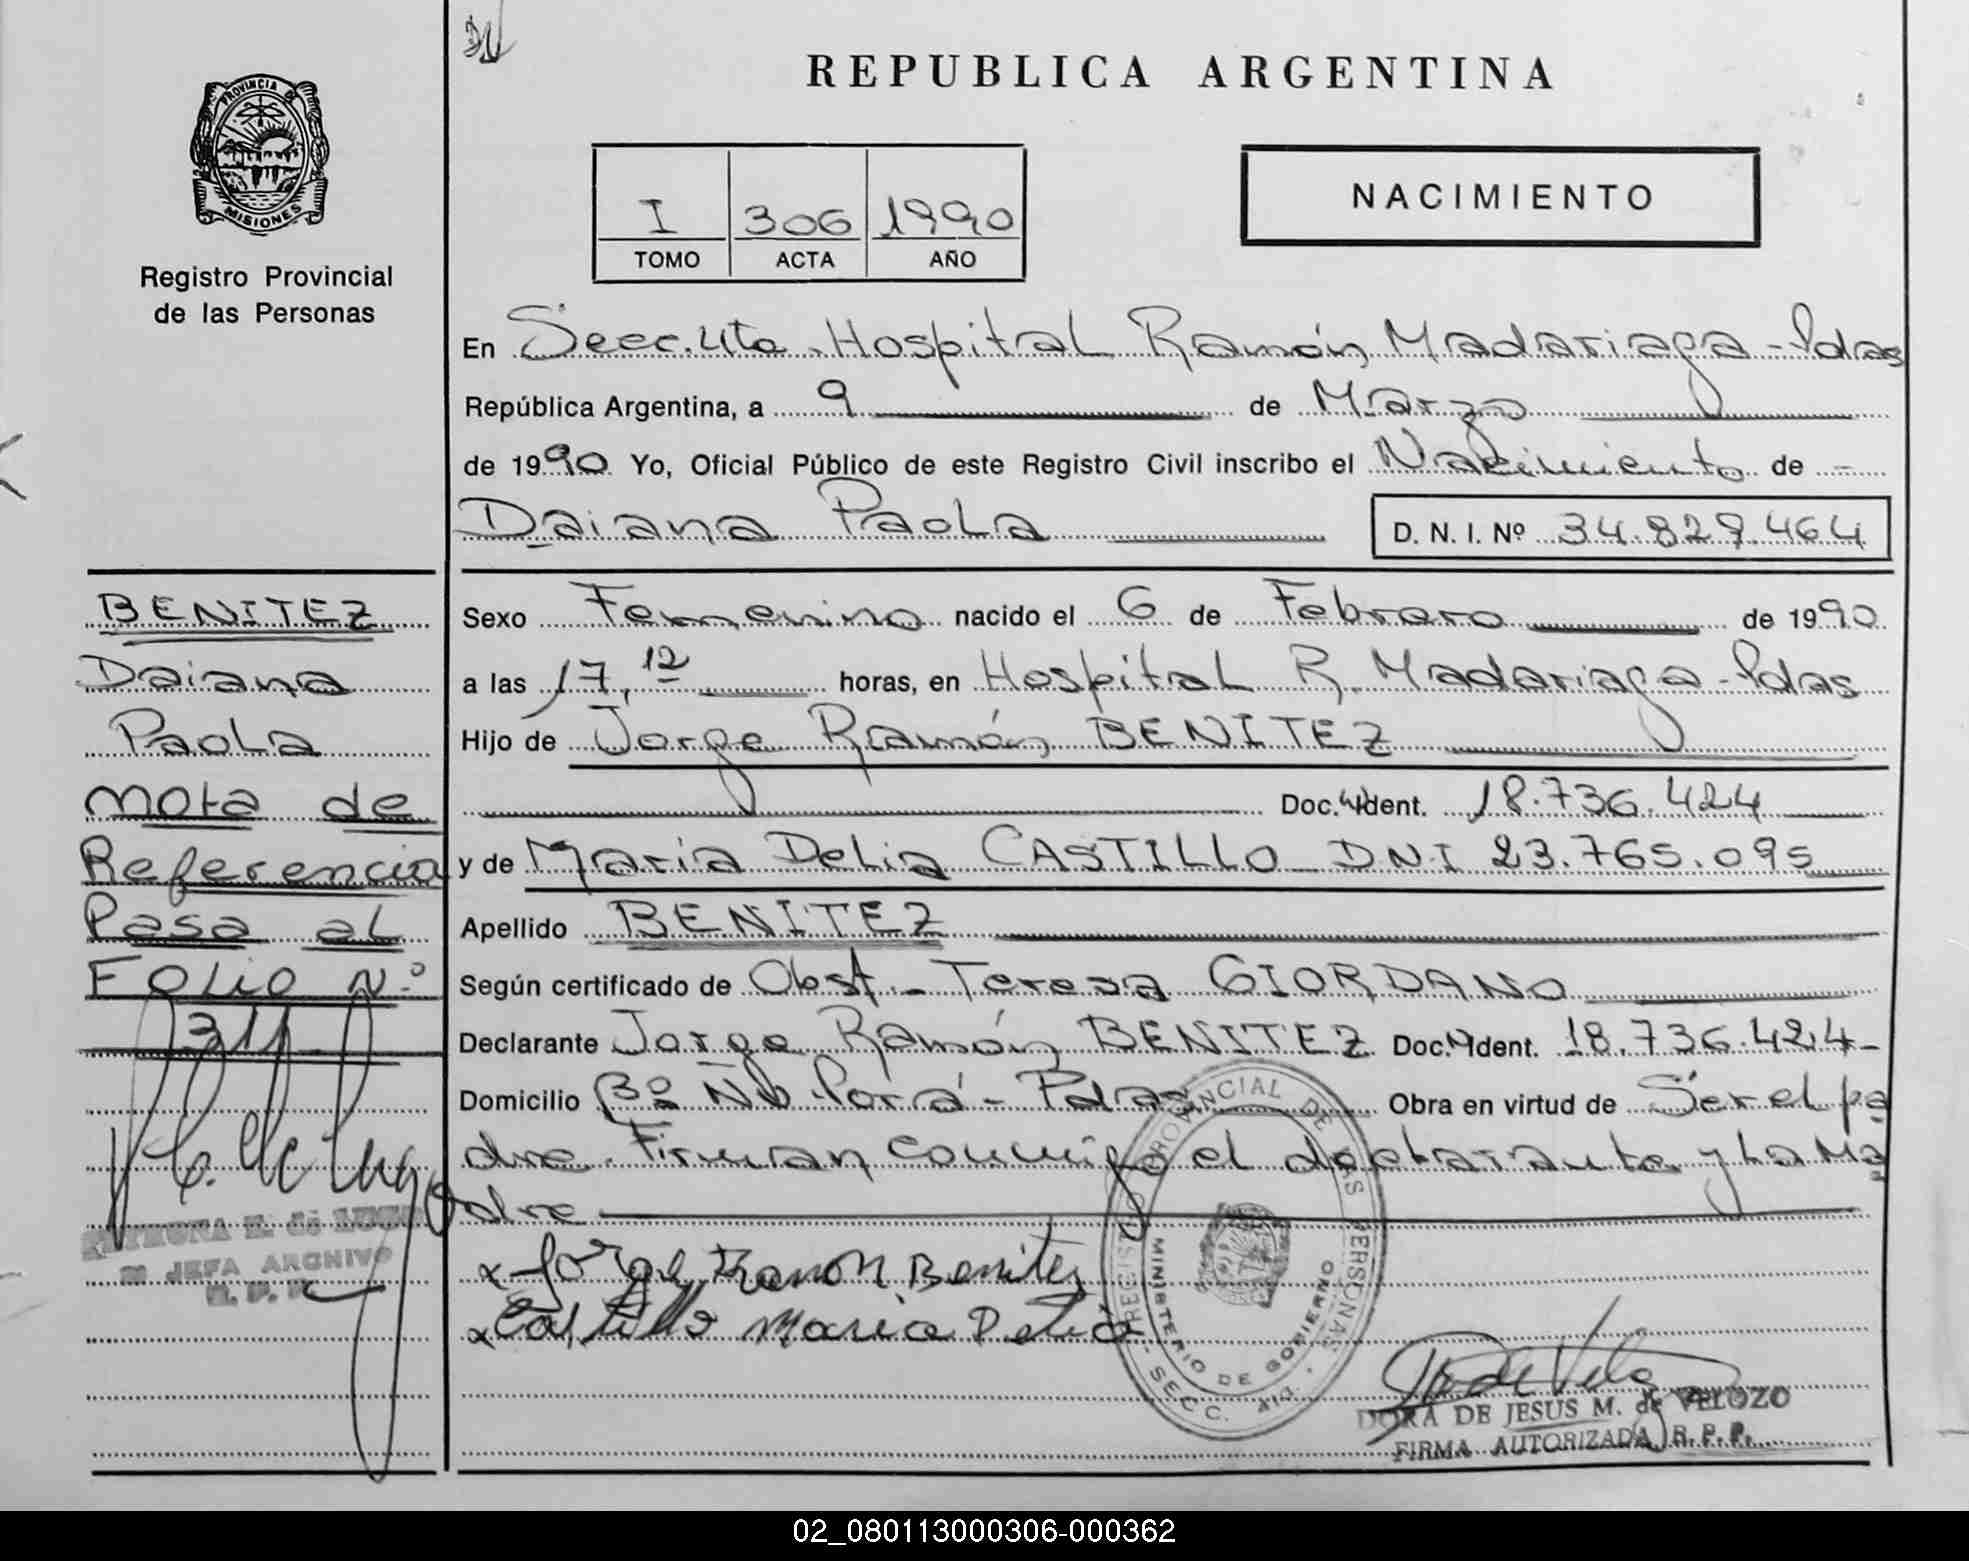 REPUBLICA ARGENTINA
PROVINCIA DE
MISIONES
Registro Provincial
de las Personas
I 306 1990
TOMO ACTA AÑO
NACIMIENTO
En Secc. 4ta. Hospital Ramón Madariaga - Pdas
República Argentina, a 9 de Marzo
de 1990 Yo, Oficial Público de este Registro Civil inscribo el Nacimiento de -
Daiana Paola D. N. I. Nº 34.829.464
BENITEZ
Daiana
Paola
Nota de
Referencia
Pasa al
Folio Nº
311
PETRONA E. de LUGO
JEFA ARCHIVO
Sexo Femenino nacido el 6 de Febrero de 1990
a las 17,12 horas, en Hospital R. Madariaga - Pdas
Hijo de Jorge Ramón BENITEZ
Doc. Ident. 18.736.424
y de María Delia CASTILLO DNI 23.765.095
Apellido BENITEZ
Según certificado de Obst - Teresa GIORDANO
Declarante Jorge Ramón BENITEZ Doc. Ident. 18.736.424-
Domicilio Bº Ñu Porá - Pdas Obra en virtud de Ser el pa
dre. Firman conmigo el declarante y La Ma
dre
x Jorge Ramon Benitez
x Castillo Maria Delia
REGISTRO PROVINCIAL DE LAS PERSONAS
MINISTERIO DE GOBIERNO
SECC. 4ta
DORA DE JESUS M. de VELOZO
FIRMA AUTORIZADA R. P. P.
02_080113000306-000362